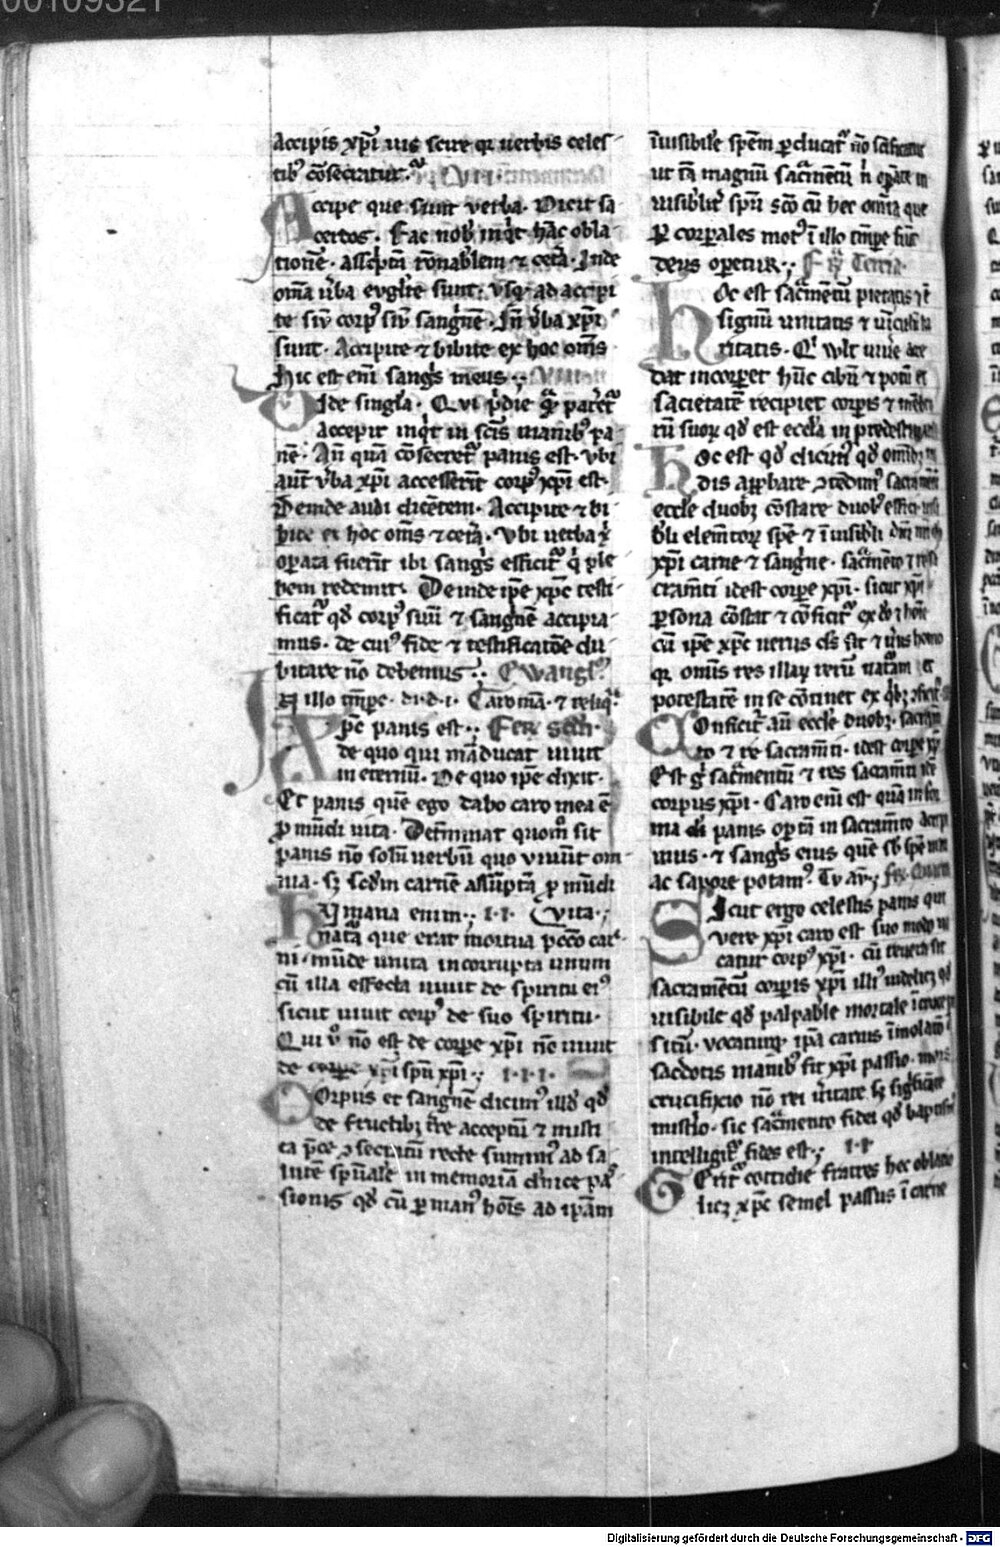 00109321
Accipis xp̄i vis scire qꝛ uerbis celes
tibꝰ cōsecratur.
Accipe que sunt verba. Dicit sa
certos. Fac nobꝭ inqͥt hāc obla
tionē. asscꝑtā rōnablem ⁊ cetꝰa. Inde
om̄a v̄ba evgl̄iste sunt. vsqꝫ ad accipi
te siv̄ corpꝰ siv̄ sangͥnē. In̄ v̄ba xp̄i
sunt. Accipite ⁊ bibite ex hoc om̄s
Hic est enī sangͥs meus
Vide singl̄a. Qvi pͥdie qᷓ pateret̄
accepit inqͥt in sc̄is manibꝰ pa
nē. An̄ quā cōsecret̄ panis est. vbi
aūt v̄ba xp̄i accesserīt corpꝰ xp̄i est.
Deinde audi dicētem. Accipite ⁊ bi
bite ex hoc om̄s ⁊ cetꝰa. Vbi verba xͥ
oꝑata fuerīt ibi sangͥs efficit̄ qͥ ple
bem redemit. Deinde ip̄e xp̄c testi
ficat̄ qd̄ corpꝰ suū ⁊ sangͥnē accipia
mus. de cuiꝰ fide ⁊ testificatōe du
bitare nō debemus. Ewangl̄
In illo tꝑe. di.d.i. Caro m̄a. ⁊ reliqͥ.
Xp̄c panis est. Fer̄ sc̄da.
de quo qui māducat uiuit
in eternū. De quo ip̄e dixit.
Et panis quē ego dabo caro mea ē
ꝓ mūdi vita. Det̄minat quom̄ sit
panis nō solū verbū quo viuūt om
nia. sꝫ sc̄dm carnē assūptā ꝓ mūdi
Hūmana enim. I.I. vita
natā que erat mortua pctō car
ni. mūde unita incorrupta unum
cū illa effecta uiuit de spiritu eiꝰ
sicut uiuit corpꝰ de suo spiritu.
Qui v̊ nō est de corꝑe xp̄i nō uiuit
de corꝑe xp̄i spū xp̄i. I.I.I.
Corpus et sangͥnē dicimꝰ illd̄ qd̄
de fructibꝫ t̄re acceptū ⁊ misti
ca p̄ce ꝯsecratū recte sumimꝰ ad sa
lutē spūale in memoriā dn̄ice pas
sionis qd̄ cū ꝑ manꝰ hoīs ad ip̄am
īuisibilē spēm ꝑducat̄ nō sc̄ificatur
ut tā magnū sacͣmētū n̄ oꝑāte in
uisiblr̄ spū sc̄o cū hec om̄ia que
ꝑ corꝑales motꝰ ī illo tꝑe fiūt
deus oꝑetur. Fr̄ Tercia.
Hoc est sacͣmētū pietatis
signū unitatis ⁊ uīculū
ritatis. Qͥ vult uiue acce
dat incorꝑet hūc cibū ⁊ potū et
sacietatē recipiet corꝑis ⁊ mēbro
rū suoꝝ qd̄ est eccl̄a in predestinatis
Hoc est qd̄ dicimꝰ qd̄ omībꝫ m
dis aꝓbare ꝯtēdimꝰ sacramēti
eccl̄e duobꝫ cōstare duobꝰ effici
bli elemētoꝝ spē ⁊ īuisibli dn̄i
xp̄i carne ⁊ sangͥne. sacͣmēto ⁊ re
cramti idest corꝑe xp̄i. sicut xp̄i
ꝑsona cōstat ⁊ cōficit̄ ex do ⁊ hoīe
cū ip̄e xp̄c verus ds̄ sit ⁊ v̄us homo
qꝛ omīs res illaꝝ rerū naturam et
potestatē in se cōtinet ex qͥbꝫ ꝯficit̄
Conficit̄ aū eccl̄e duobꝫ. sacram̄
to ⁊ re sacramti. idest corꝑe xp̄i
Est gͦ sacͣmentū ⁊ res sacramti
corpus xp̄i. Caro enī est quā in for
ma panis oꝑtā in sacramēto accip
imus. ⁊ sangͥs eius quē sb̄ spē vini
ac sapore potamꝰ. Tv aū. fer̄ quarta
Sicut ergo celestis panis qui
vere xp̄i caro est suo modo vo
catur corpꝰ xp̄i. cū reuera sit
sacramētū corꝑis xp̄i illiꝰ videlicꝫ qd̄
uisibile qd̄ palpabile mortale ī cruce
situ. vocaturqꝫ ip̄a carnis īmolatō
sacdotis manibꝰ fit xp̄i passio. mors
crucifixio nō rei v̄itate sꝫ sigͥficāte
misterio. sic sacͣmento fidei qd̄ baptismꝰ
intelligit̄ fides est. I.I
Itērat̄ cottidie fratres hec oblatio
licꝫ xp̄c semel passus ī carne
Digitalisierung gefördert durch die Deutsche Forschungsgemeinschaft - DFG